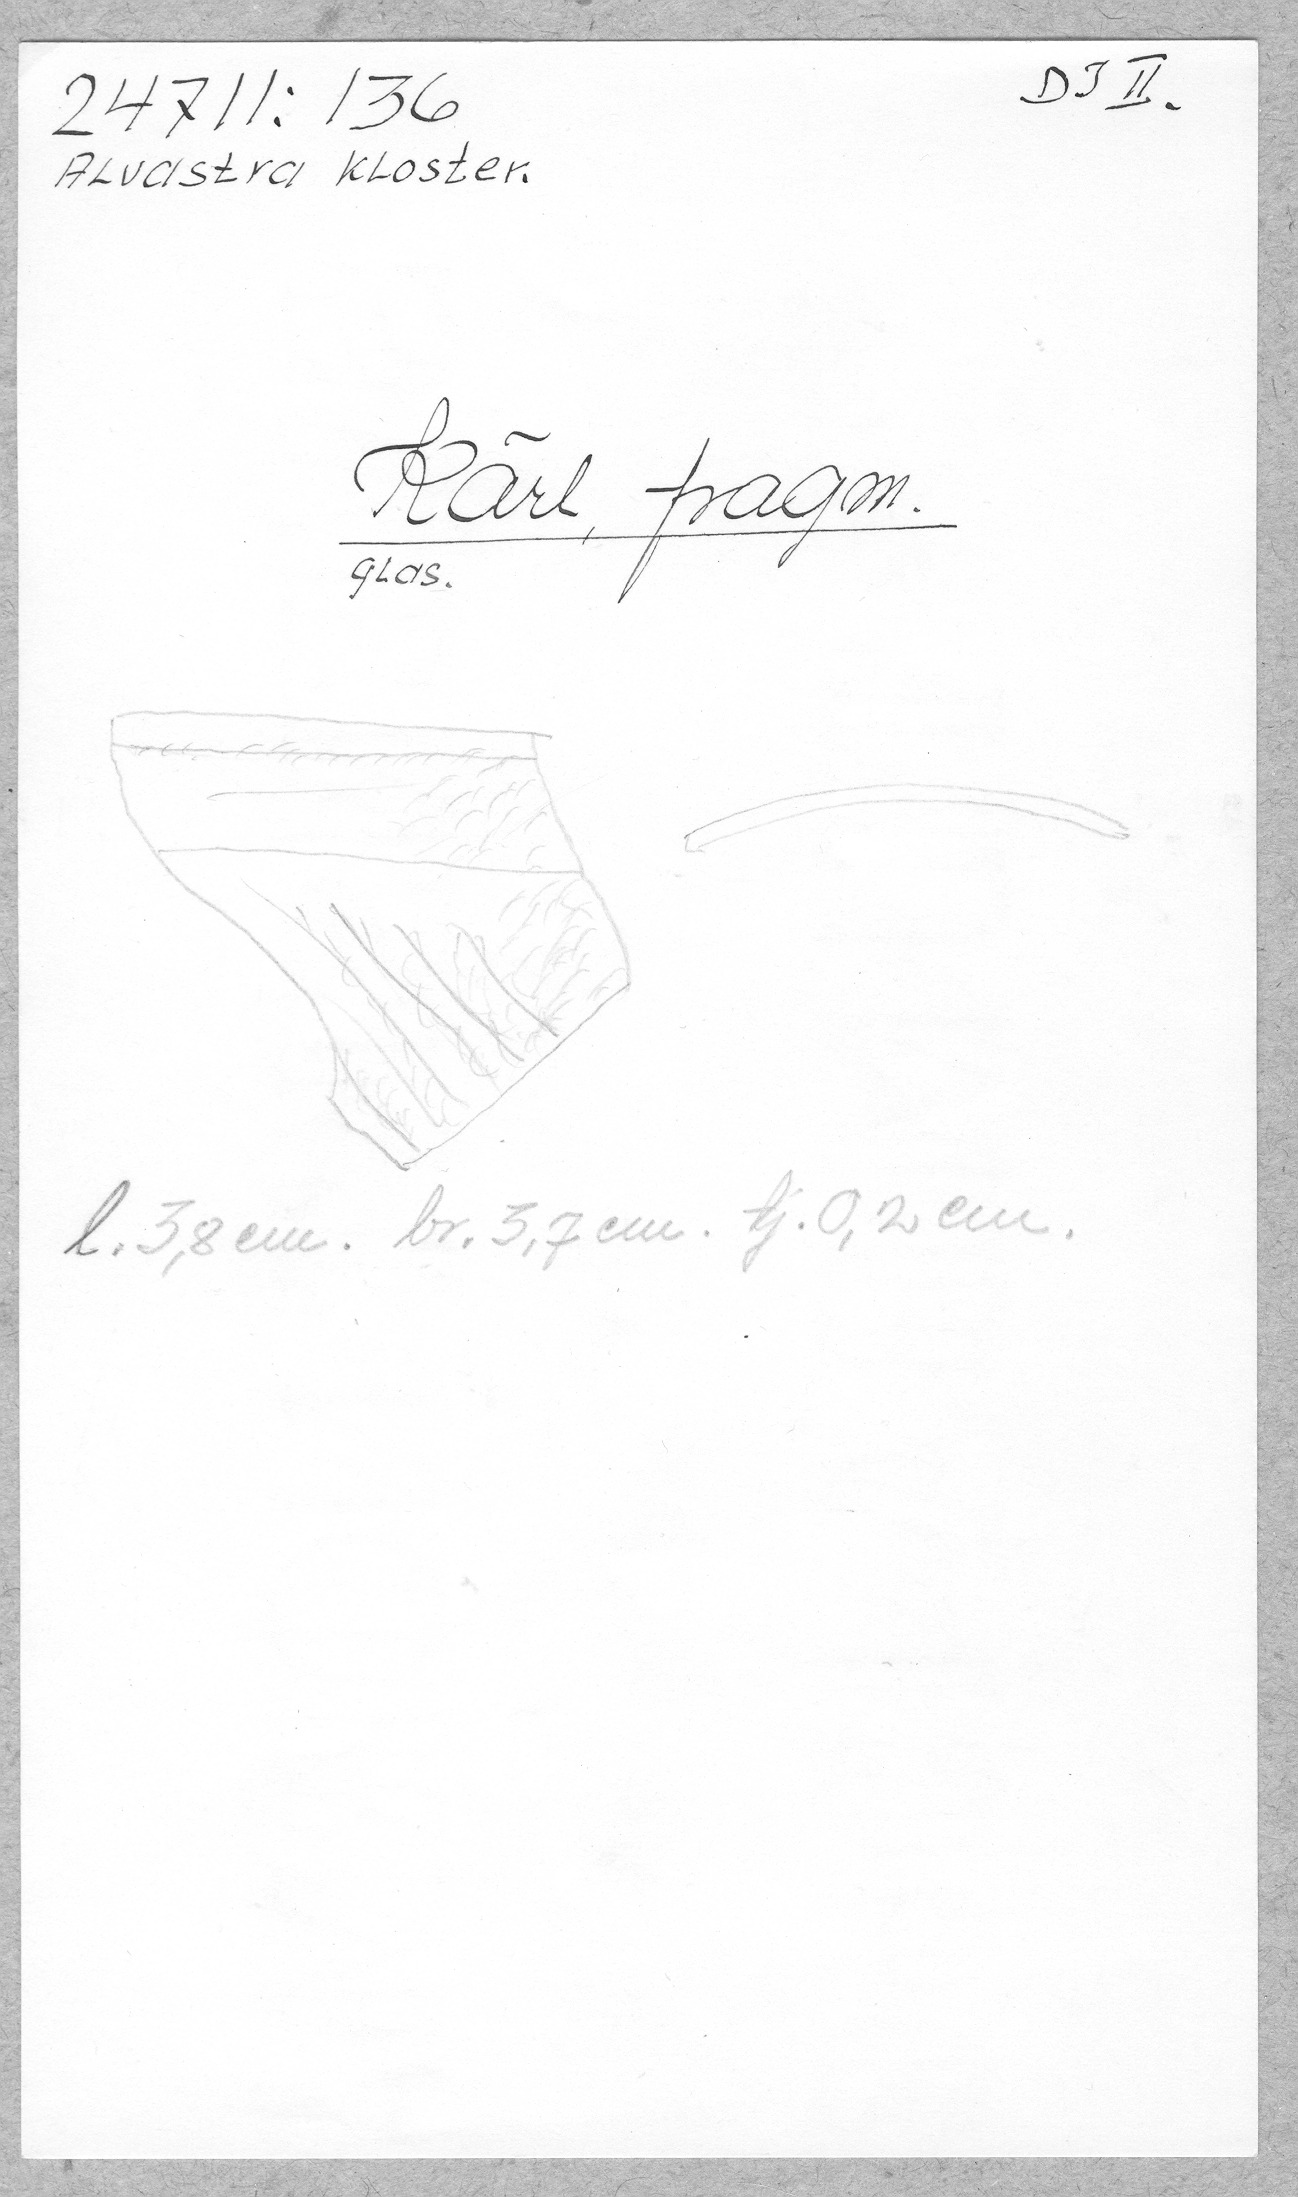 24711:136
DJ II.
Alvastra kloster.
Kärl, fragm.
glas.
l. 3,8 cm. br. 3,7 cm. tj. 0,2 cm.